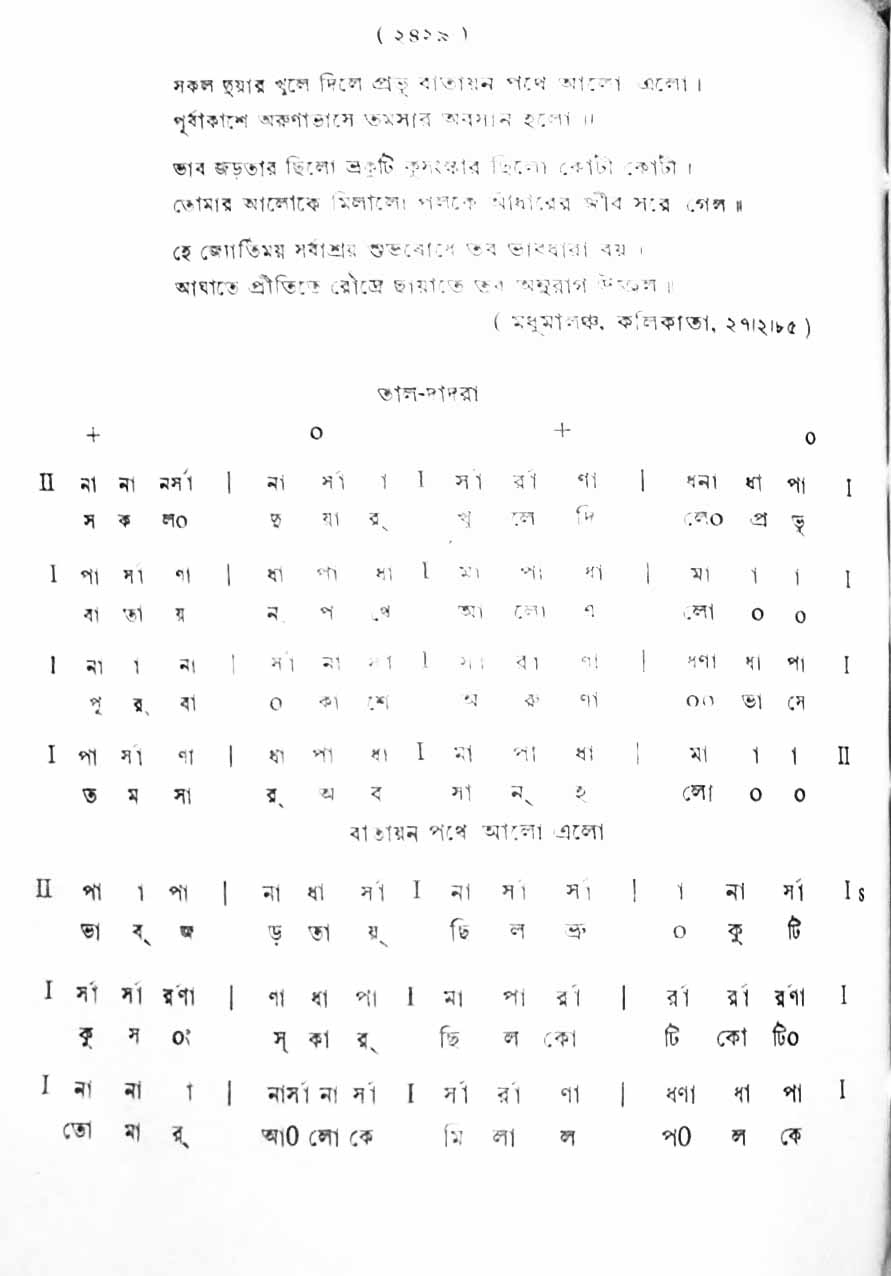 ( ২৪২৯ )
সকল দুয়ার খুলে দিলে প্রভু বাতায়ন পথে আলো এলো ।
পূর্বাকাশে অরুণাভাসে তমসার অবসান হলো ॥
ভাব জড়তার ছিলো ভ্রূকুটি কুসংস্কার ছিলো কোটী কোটী ।
তোমার আলোকে মিলালো পলকে আঁধারের জীব সরে গেল ॥
হে জ্যোতির্ময় সর্বাশ্রয় শুভবোধে তব ভাবধারা বয় ।
আঘাতে প্রীতিতে রৌদ্রে ছায়াতে তব অনুরাগ উচ্ছল ॥
( মধুমালঞ্চ, কলিকাতা, ২৭।২।৮৫ )
তাল-দাদরা
+ o + o
II না না নর্সা | না র্সা া I র্সা র্রা ণা | ধনা ধা পা I
স ক ল০ দু য়া র্ খু লে দি লে০ প্র ভু
I পা র্সা ণা | ধা পা ধা I মা পা ধা | মা া া I
বা তা য় ন প থে আ লো এ লো ০ ০
I না া না | র্সা না র্সা I র্সা র্রা ণা | ধণা ধা পা I
পূ র্ বা ০ কা শে অ রু ণা ০০ ভা সে
I পা র্সা ণা | ধা পা ধা I মা পা ধা | মা া া II
ত ম সা র্ অ ব সা ন্ হ লো ০ ০
বাতায়ন পথে আলো এলো
II পা া পা | না ধা র্সা I না র্সা র্সা | া না র্সা I s
ভা ব্ জ ড় তা য়্ ছি ল ভ্রু ০ কু টি
I র্সা র্সা র্রণা | ণা ধা পা I মা পা র্রা | র্রা র্রা র্রণা I
কু স ০ং স্ কা র্ ছি ল কো টি কো টি০
I না না া | নার্সা না র্সা I র্সা র্রা ণা | ধণা ধা পা I
তো মা র্ আ০ লো কে মি লা ল প০ ল কে